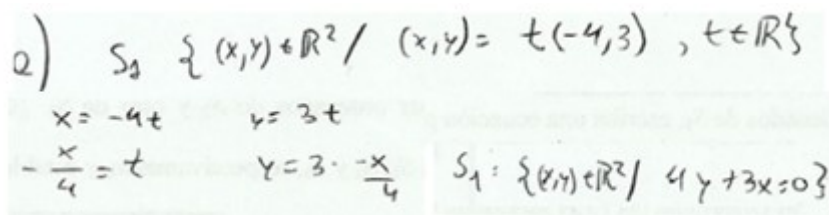 a) S₁ { (x,y) ∈ ℝ² / (x,y) = t(-4,3) , t ∈ ℝ}
x = -4t y = 3t
- x/4 = t y = 3 · -x/4 S₁ : {(x,y) ∈ ℝ² / 4y + 3x = 0}